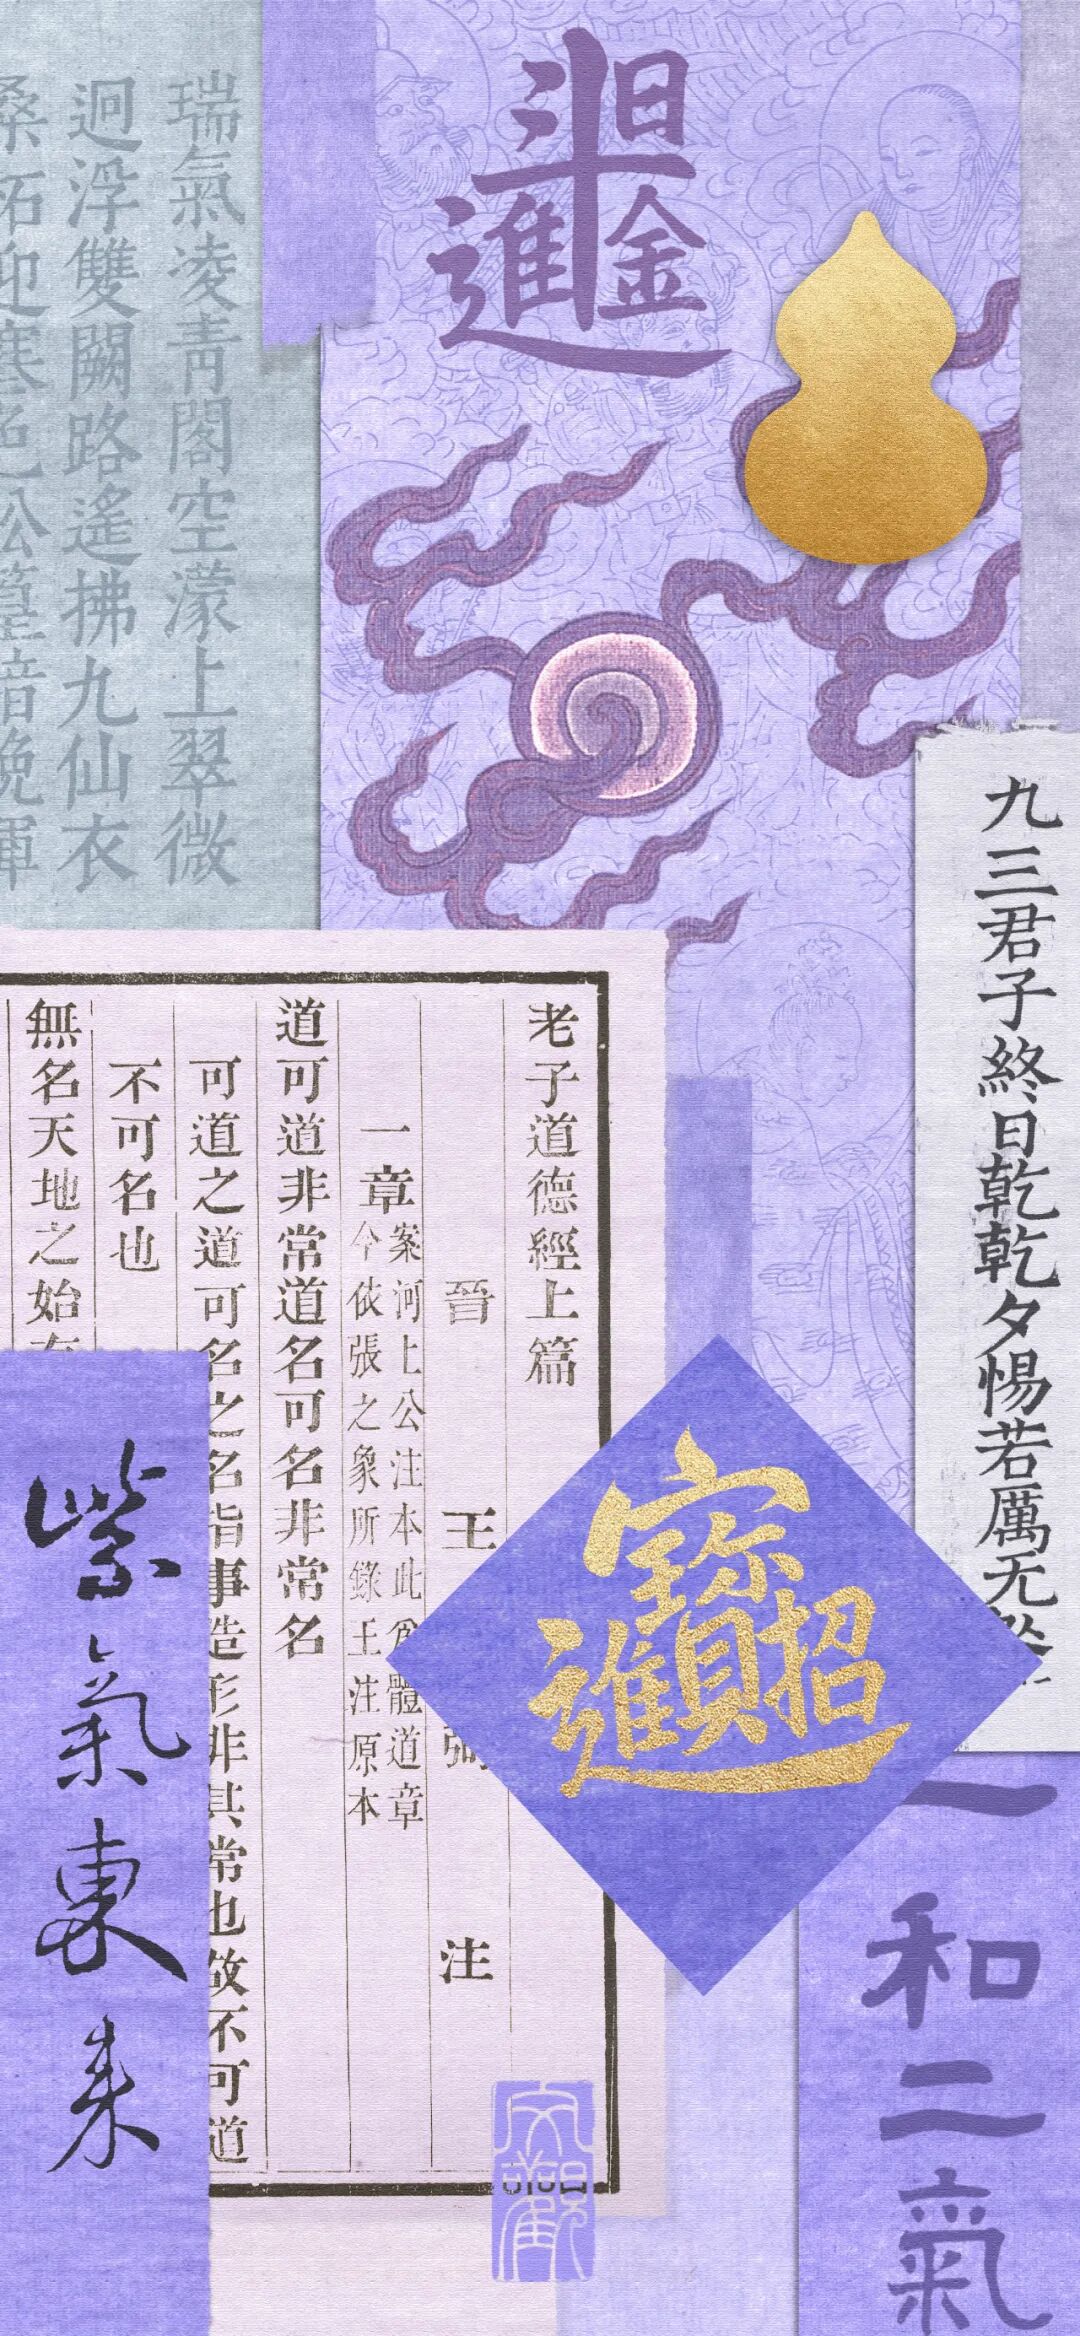 日進斗金
瑞氣凌青閣空濛上翠微
迥浮雙闕路遙拂九仙衣
桑柘迎寒色松篁暗晚暉
九三君子終日乾乾夕惕若厲无咎
老子道德經上篇
晉王弼注
一章
案河上公注本此為體道章
今依張之象所錄王注原本
道可道非常道名可名非常名
可道之道可名之名指事造形非其常也故不可道
不可名也
無名天地之始
招財進寶
紫氣東來
一和二氣
文觀